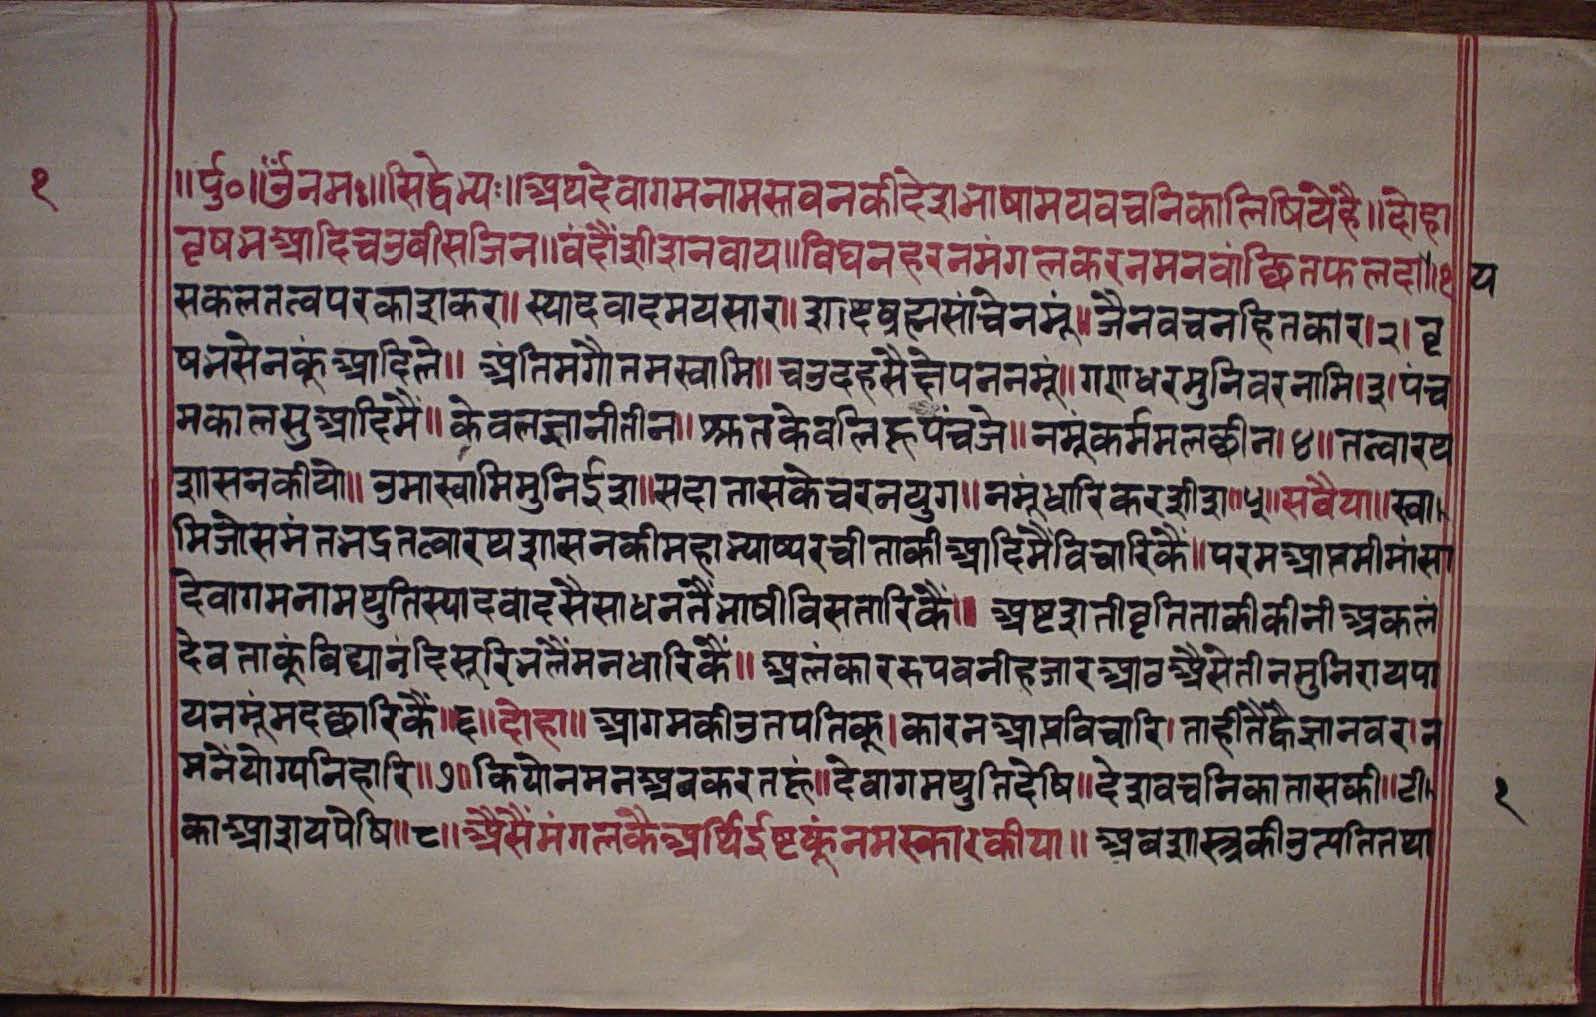 १
॥र्पु०॥ ॐनमः॥सिद्धेभ्यः॥अथदेवागमनामस्तवनकीदेशभाषामयवचनिकालिषियेहै॥दोहा
वृषभआदिचउवीसजिन॥वंदौंशीशनवाय॥विघनहरनमंगलकरनमनवांछितफलदा॥१ य
सकलतत्वपरकाशकर॥स्यादवादमयसार॥शब्दब्रह्मसांचेनमूं॥जैनवचनहितकार।२।वृ
षभसेनकूंआदिले॥अंतिमगौतमस्वामि॥चउदहसैत्रेपननमूं॥गणधरमुनिवरनामि।३।पंच
मकालसुआदिमैं॥केवलज्ञानीतीन॥श्रुतकेवलिहूपंचजे॥नमूंकर्ममलछीन।४॥तत्वारथ
शासनकीयो॥उमास्वामिमुनिईश॥सदातासकेचरनयुग॥नमूंधारिकरशीश॥५॥सवैया॥स्वा
मिजोसमंतभद्रतत्वारथशासनकीमहाभ्याष्यरचीताकीआदिमैंविचारिकैं॥परमआप्तमीमांसा
देवागमनामथुतिस्यादवादसैसाधनतैंभाषीविसतारिकैं॥अष्टशतीवृतिताकीकीनीअकलं
देवताकूंबिद्यानंदिसूरिभलैंमनधारिकैं॥अलंकाररुपवनीहजारआठअैसेतीनमुनिरायपा
यनमूंमदछारिकैं॥६॥दोहा॥आगमकीउतपतिकू।कारनआप्तविचारि।ताहीतैंह्वैज्ञानवर।न
मनैंयोग्यनिहारि॥७॥कियोनमनअबकरतहूं॥देवागमथुतिदेषि॥देशवचनिकातासकी॥टी
काआशयपेषि॥८॥अैसैंमंगलकैअर्थिईष्टकूंनमस्कारकीया॥अबशास्त्रकीउत्पतितथा
१